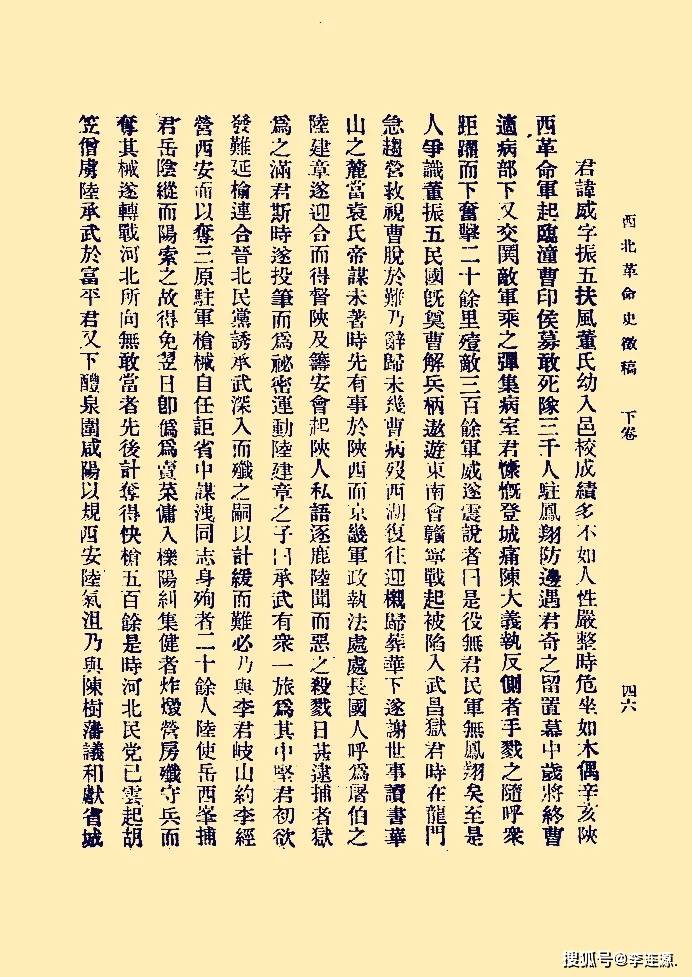 西北革命史徵稿 下卷 四六
君諱威字振五扶風董氏幼入邑校成績多不如人性嚴整時危坐如木偶辛亥陝
西革命軍起臨潼曹印侯募敢死隊三千人駐鳳翔防邊遇君奇之留置幕中歲將終曹
適病部下又交関敵軍乘之彈集病室君慷慨登城痛陳大義執反側者手戮之隨呼衆
距躍而下奮擊二十餘里殪敵三百餘軍威遂震說者曰是役無君民軍無鳳翔矣至是
人爭識董振五民國旣奠曹解兵柄遨遊東南會贛寧戰起被陷入武昌獄君時在龍門
急趨營救視曹脫於難乃辭歸未幾曹病歿西湖復往迎櫬歸葬華下遂謝世事讀書華
山之麓當袁氏帝謀未著時先有事於陝西而京畿軍政執法處處長國人呼爲屠伯之
陸建章遂迎合而得督陝及籌安會起陝人私語逐鹿陸聞而惡之殺戮日甚逮捕者獄
爲之滿君斯時遂投筆而爲祕密運動陸建章之子曰承武有衆一旅爲其中堅君初欲
發難延楡連合晉北民黨誘承武深入而殲之嗣以計緩而難必乃與李君岐山約李經
營西安而以奪三原駐軍槍械自任詎省中謀洩同志身殉者二十餘人陸使岳西峯捕
君岳陰縱而陽索之故得免翌日卽僞爲賣菜傭入櫟陽糾集健者炸燬營房殲守兵而
奪其械遂轉戰河北所向無敢當者先後計奪得快槍五百餘是時河北民党已雲起胡
笠僧虜陸承武於富平君又下醴泉圍咸陽以規西安陸氣沮乃與陳樹藩議和獻省城
搜狐号@李连源.